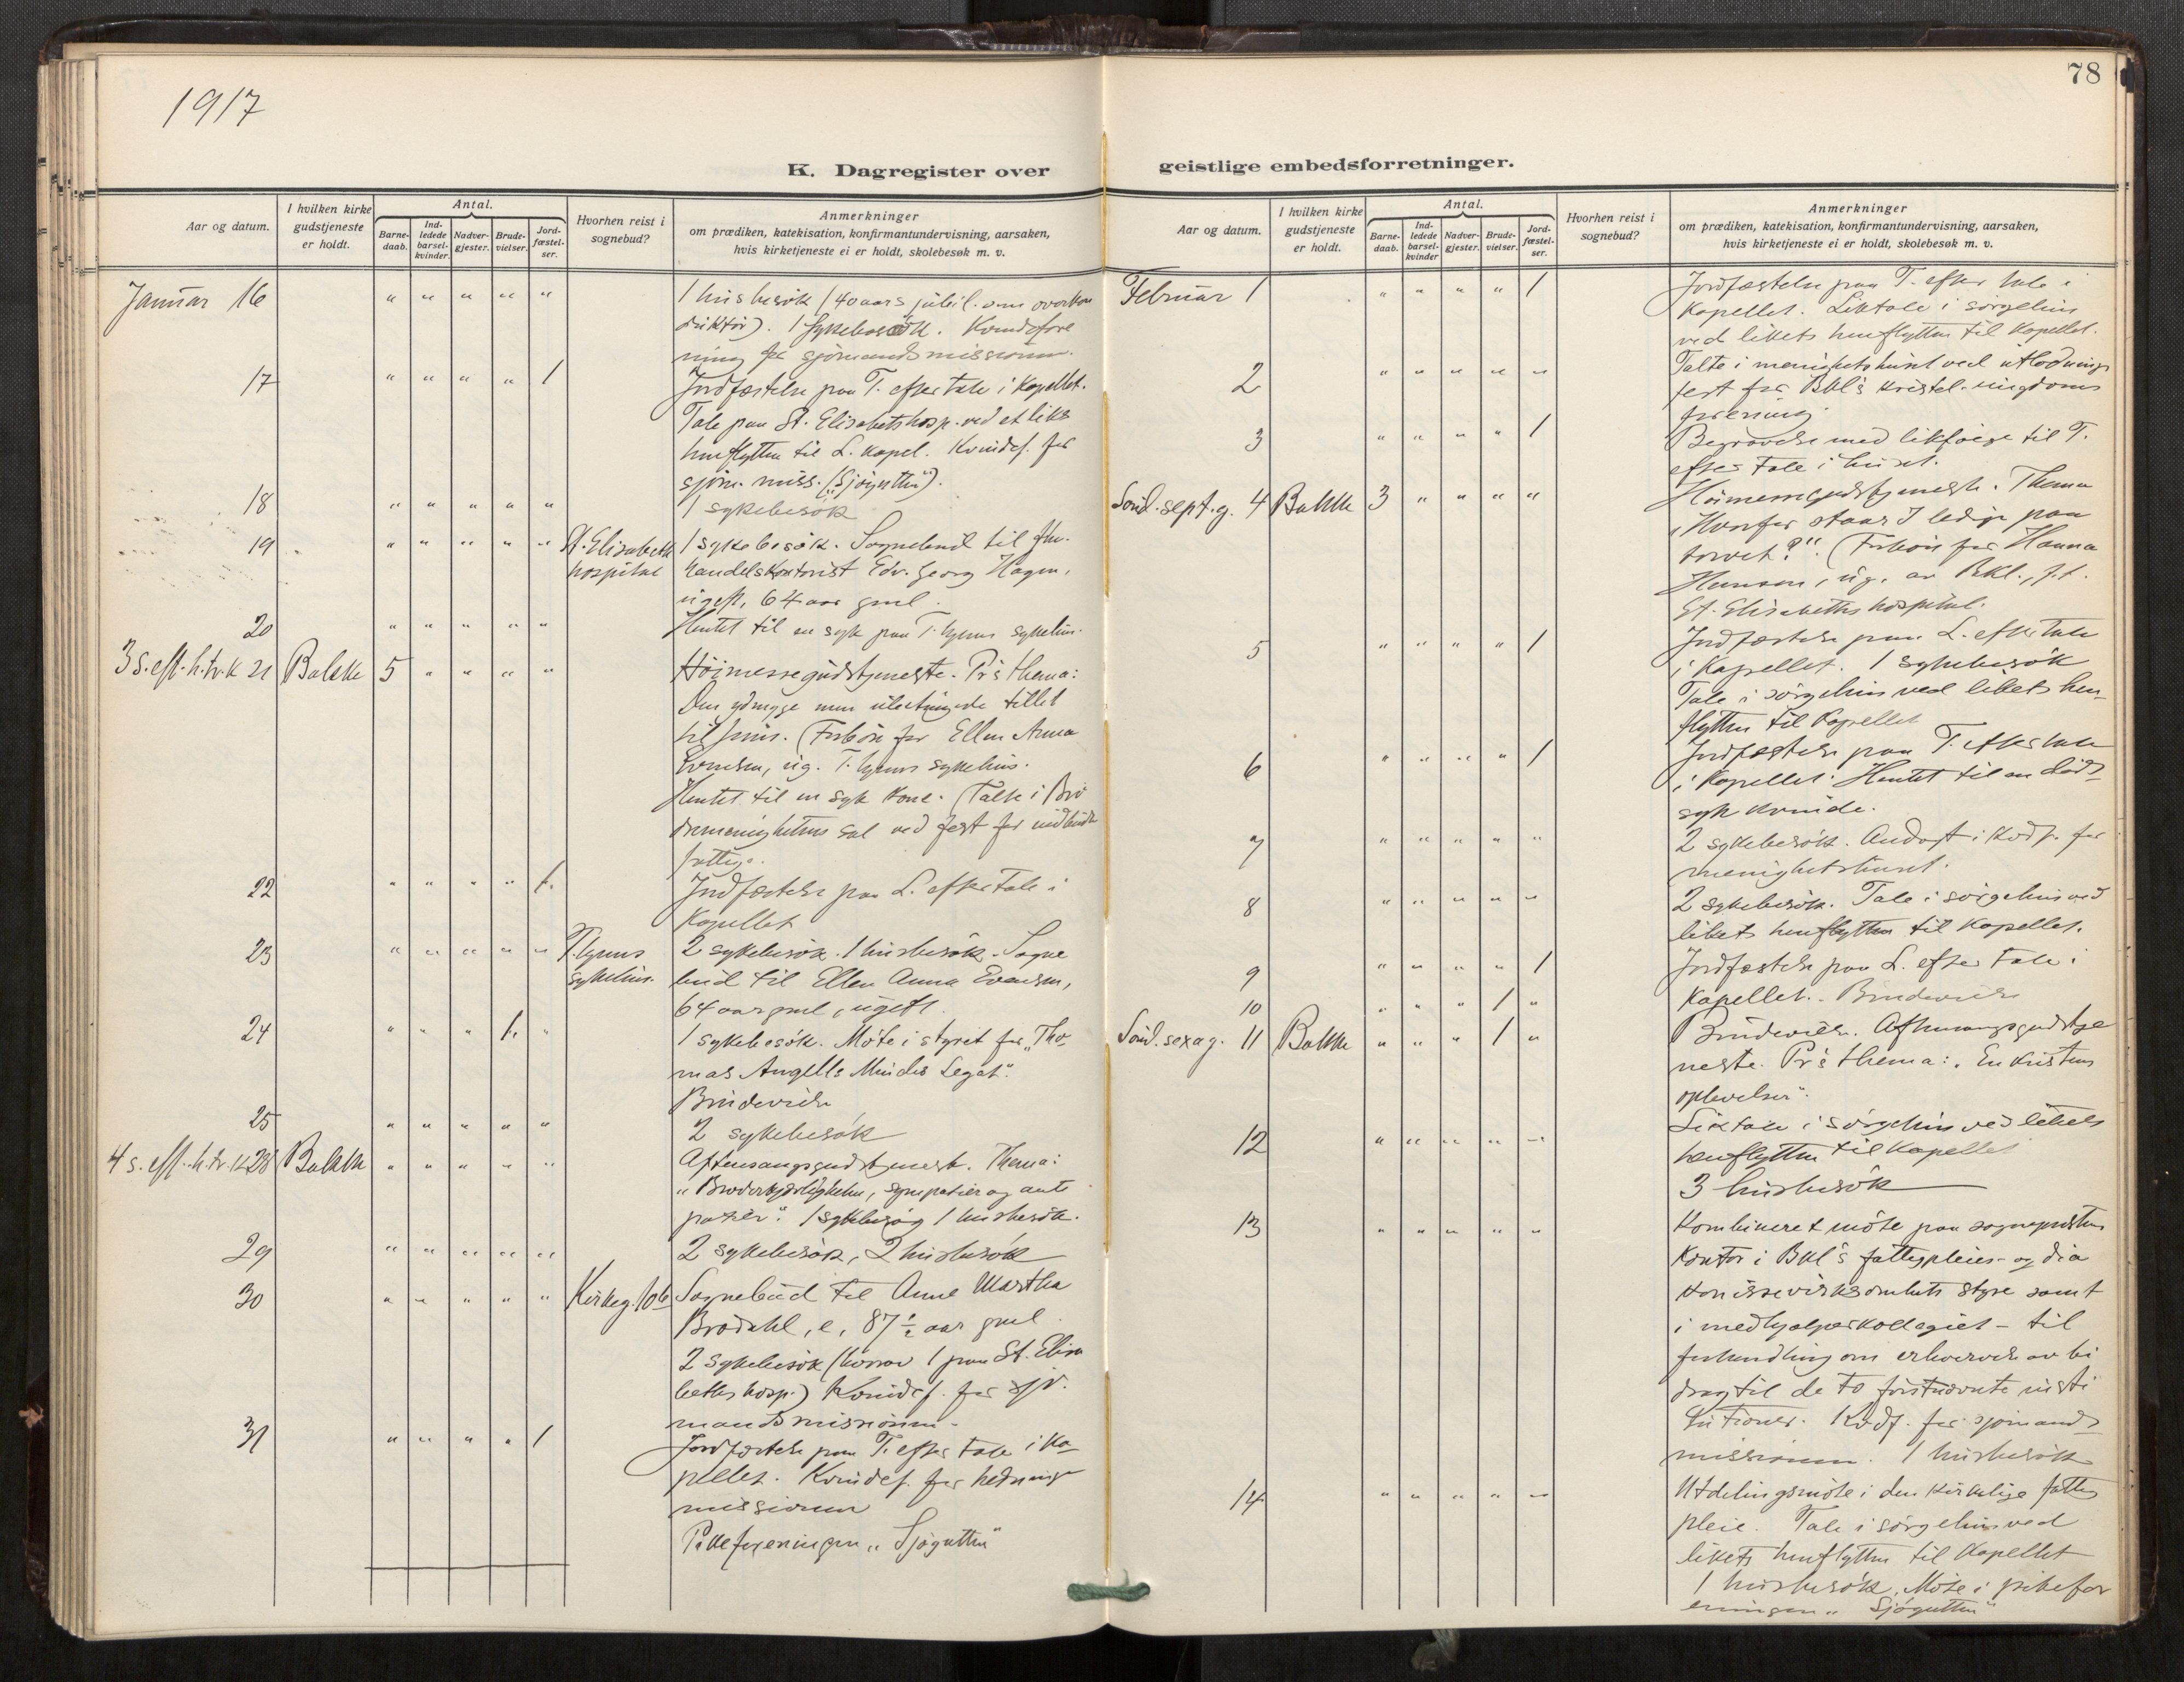 1917
78
K. Dagregister over geistlige embedsforretninger.
Aar og datum.
I hvilken kirke gudstjeneste er holdt.
Antal.
Barne-daab.
Ind-ledede barsel-kvinder.
Nadver-gjester.
Brude-vielser.
Jord-fæstel-ser.
Hvorhen reist i sognebud?
Anmerkninger
om prædiken, katekisation, konfirmantundervisning, aarsaken,
hvis kirketjeneste ei er holdt, skolebesøk m. v.
Januar 16 " " " " " 1 husbesøk (40 aars jubil. som overkon
duktør). 1 sykebesøk. Kvindefore
ning for sjømandsmissionen.
17 " " " " 1 Jordfæstelse paa T. efter tale i kapellet.
Tale paa St. Elisabetshosp. ved et liks
henflytten til L. kapel. Kvindef. for
sjøm. miss. ("Sjøgutten").
18 " " " " " 1 sykebesøk
19 " " " " " St. Elisabeth 1 sykebesøk. Sognebud til fhv.
hospital handelskontorist Edv. Georg Hagen,
ugift, 64 aar gml.
20 " " " " " Hentet til en syk paa T. hjems sykehus.
3 s. eft. h. tr. k 21 Bakke 5 " " " " Høimessegudstjeneste. Pr's thema:
Den ydmyge men tillet
til Jesus. (Forbøn for Ellen Anna
Evensen, ug. T. hjems sykehus.
Hentet til en syk kone. (Talte i Brø
dremenighetens sal ved fest for indbudte
fattige.
22 " " " " 1. Jordfæstelse paa L. efter tale i
kapellet
23 " " " " " T. hjems 2 sykebesøk. 1 husbesøk. Sogne
sykehus. bud til Ellen Anna Evensen,
64 aar gml, ugift.
24 " " " 1. " 1 sykebesøk. Møte i styret for "Tho
mas Angells Mindes Legat".
Brudevielse
25 " " " " " 2 sykebesøk
4 s. eft. h. tr. k 28 Bakke " " " " " Aftensangsgudstjeneste. Thema:
"Broderkjærligheten, sympatier og anti
patier". 1 sykebesøg 1 husbesøk.
29 " " " " " 2 sykebesøk, 2 husbesøk
30 " " " " " Kirkeg. 10 Sognebud til Anne Martha
Brødahl, e, 87 1/2 aar gml.
2 sykebesøk (hvorav 1 paa St. Elisa
beths hosp.) Kvindef. for sjø
mandsmissionen.
31 " " " " 1 Jordfæstelse paa T. efter tale i ka
pellet. Kvindef. for hedninge
missionen
Pikeforeningen "Sjøgutten"
Aar og datum.
I hvilken kirke gudstjeneste er holdt.
Antal.
Barne-daab.
Ind-ledede barsel-kvinder
Nadver-gjester.
Brude-vielser.
Jord-fæstel-ser.
Hvorhen reist i sognebud?
Anmerkninger
om prædiken, katekisation, konfirmantundervisning, aarsaken,
hvis kirketjeneste ei er holdt, skolebesøk m. v.
Februar 1 " " " " 1 Jordfæstelse paa T. efter tale i
kapellet. Liktale i sørgehus
ved likets henflytten til kapellet.
2 " " " " " Talte i menighetshuset ved utlodnings
fest for Bkl's kristel. ungdoms
forening.
3 " " " " 1 Begravelse med likfølge til T.
efter tale i huset.
Sønd. sept.g. 4 Bakke 3 " " " " Høimessegudstjeneste. Thema
"Hvorfor staar I ledige paa
torvet?". (Forbøn for Hanna
Hansen, ug. av Bkl., f.t.
St. Elisabeths hospital.
5 " " " " 1 Jordfæstelse paa L. efter tale
i kapellet. 1 sykebesøk
Tale i sørgehus ved likets hen
flytten til kapellet
6 " " " " 1 Jordfæstelse paa T. efter tale
i kapellet. Hentet til en døds
syk kvinde.
7 " " " " " 2 sykebesøk. Andagt i kvdf. for
menighetshuset.
8 " " " " " 2 sykebesøk. Tale i sørgehus ved
likets henflytten til kapellet.
9 " " " " 1 Jordfæstelse paa L. efter tale i
kapellet.
10 " " " 1 " Brudevielse
Sønd. sexag. 11 Bakke " " " 1 " Brudevielse. Aftensangsgudstje
neste. Pr's thema: "En kristens
oplevelser".
12 " " " " " Liktale i sørgehus ved likets
henflytten til kapellet
3 husbesøk
13 " " " " " Kombineret møte paa sogneprestens
kontor i Bkl's fattigpleies- og dia
konissevirksomhets styre samt
i medhjælperkollegiet - til
forhandling om erhvervelse av bi
drag til de to førstnævnte insti
tutioner. Kvdf. for sjømands
missionen. 1 husbesøk
14 " " " " " Utdelingsmøte i den kirkelige fattig
pleie. Tale i sørgehus ved
likets henflytten til kapellet
1 husbesøk. Møte i pikefor
eningen "Sjøgutten"